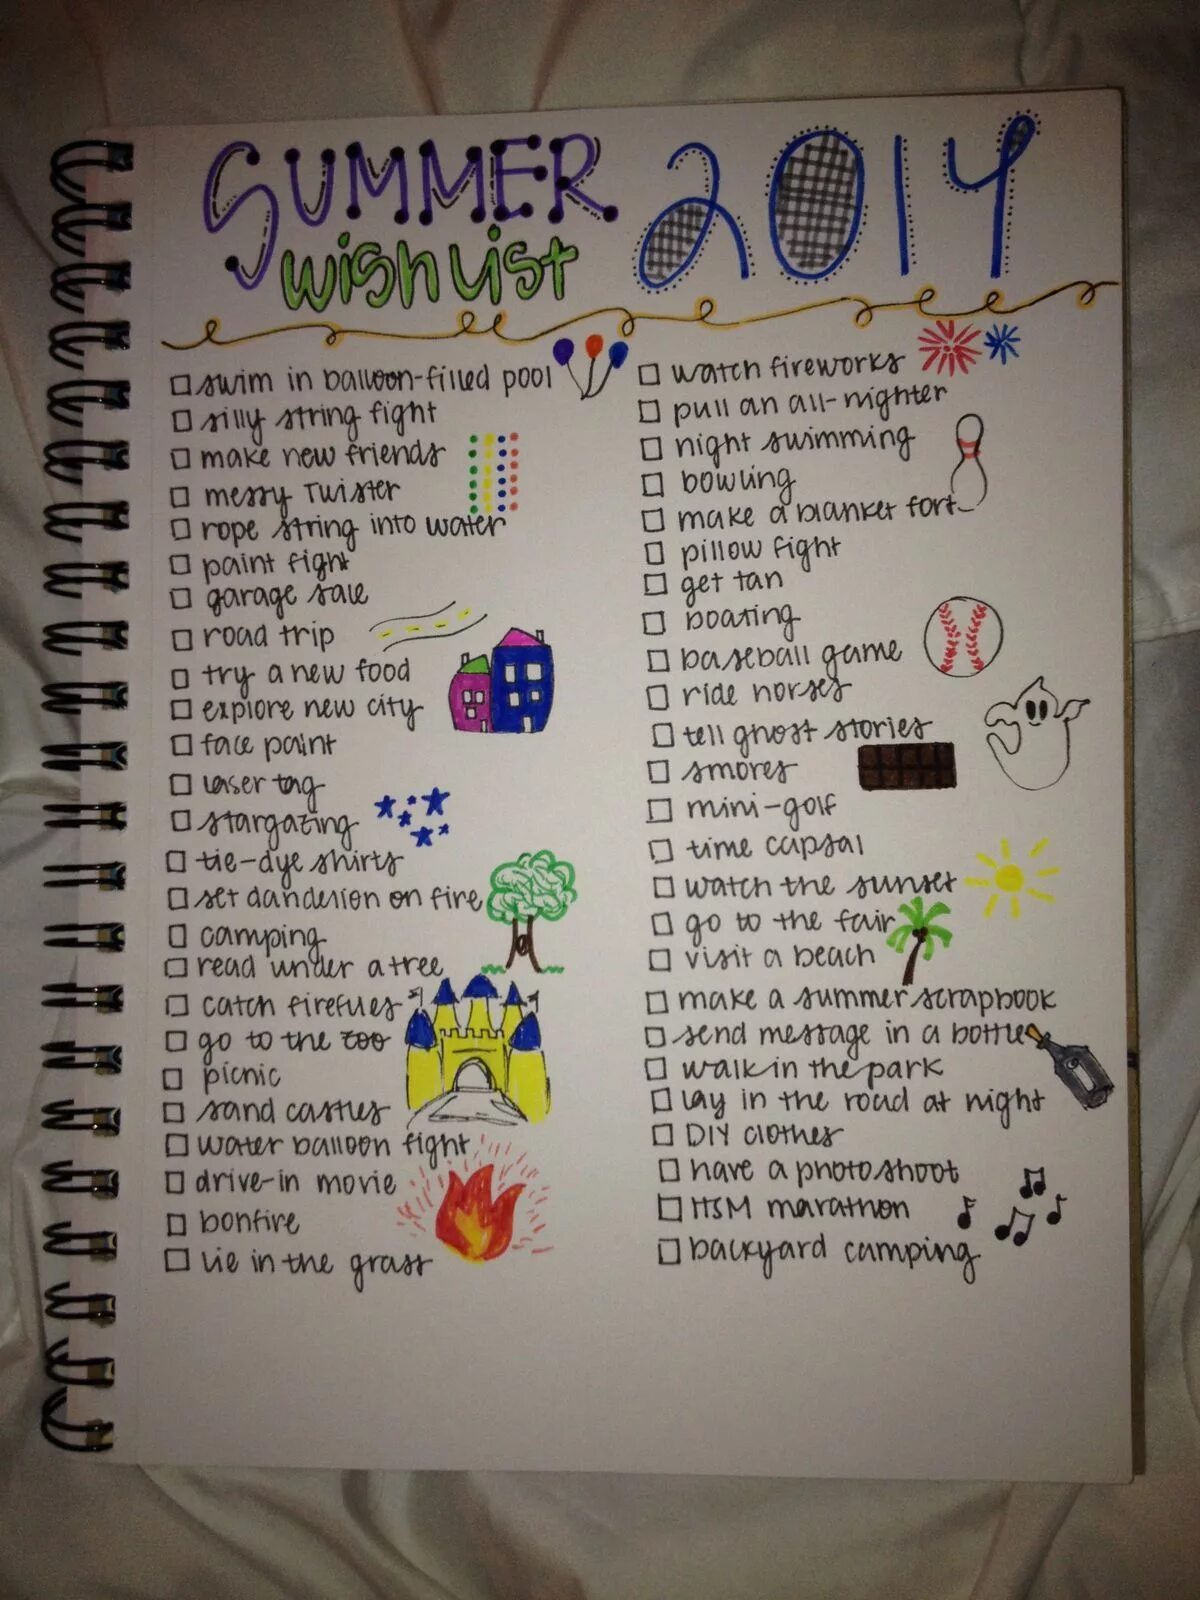 SUMMER 2014
wish list
swim in balloon-filled pool
silly string fight
make new friends
messy Twister
rope string into water
paint fight
garage sale
road trip
try a new food
explore new city
face paint
laser tag
stargazing
tie-dye shirts
set dandelion on fire
camping
read under a tree
catch fireflies
go to the zoo
picnic
sand castles
water balloon fight
drive-in movie
bonfire
lie in the grass
watch fireworks
pull an all-nighter
night swimming
bowling
make a blanket fort
pillow fight
get tan
boating
baseball game
ride horses
tell ghost stories
smores
mini-golf
time capsal
watch the sunset
go to the fair
visit a beach
make a summer scrapbook
send message in a bottle
walk in the park
lay in the road at night
DIY clothes
have a photoshoot
HSM marathon
backyard camping